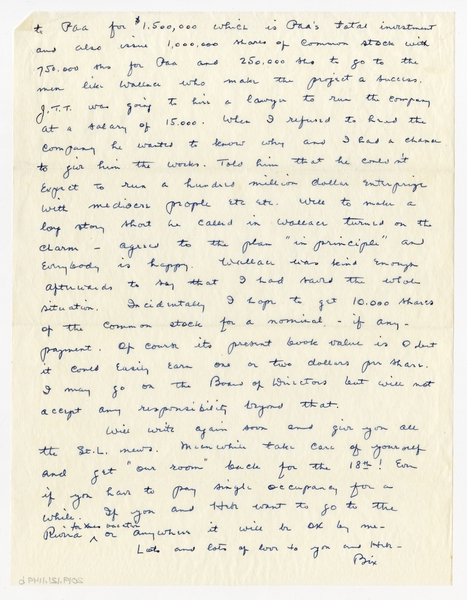 to Paa for $1.500,000 which is Paa's total investment
and also issue 1,000,000 shares of common stock with
750.000 shs for Paa and 250.000 shs to go to the
men like Wallace who make the project a success.
J.T.T. was going to hire a lawyer to run the company
at a salary of 15.000. When I refused to head the
company he wanted to know why and I had a chance
to give him the works. Told him that he couldn't
expect to run a hundred million dollar enterprize
with mediocre people etc etc. Well to make a
long story short he called in Wallace turned on the
charm – agreed to the plan "in principle" and
everybody is happy. Wallace was kind enough
afterwards to say that I had saved the whole
situation. Incidentally I hope to get 10.000 shares
of the common stock for a nominal – if any –
payment. Of course its present book value is 0 but
it could easily earn one or two dollars per share.
I may go on the Board of Directors but will not
accept any responsibility beyond that.
Will write again soon and give you all
the St.L. news. Meanwhile take care of yourself
and get "our room" back for the 18th! Even
if you have to pay single occupancy for a
while. If you and Hek want to go to the
Riviera for Xmas vacation or anywhere it will be OK by me –
Lots and lots of love to you and Hek –
Bix
d PM11.151.P106